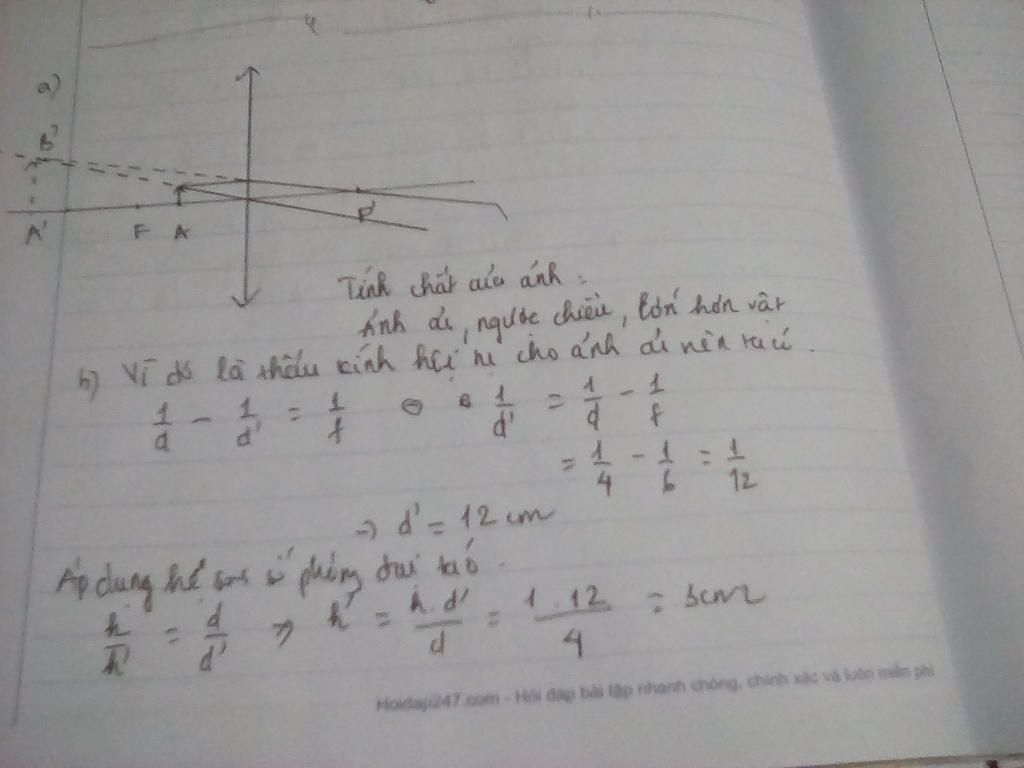 a)
B'
A' F A F'
Tính chất của ảnh:
Ảnh ảo, ngược chiều, lớn hơn vật
b) Vì đó là thấu kính hội tụ cho ảnh ảo nên ta có.
1/d - 1/d' = 1/f ⇔ 1/d' = 1/d - 1/f
= 1/4 - 1/6 = 1/12
→ d' = 12 cm
Áp dụng hệ số phóng đại
h/h' = d/d' ⇒ h' = h.d'/d = 1.12/4 = 3cm
Hoidap247.com - Hỏi đáp bài tập nhanh chóng, chính xác và luôn miễn phí